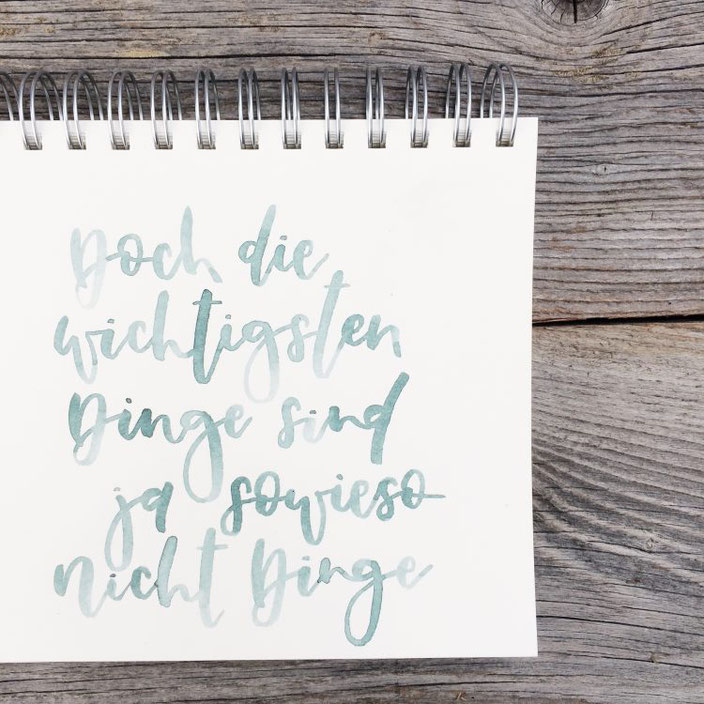 Doch die
wichtigsten
Dinge sind
ja sowieso
nicht Dinge